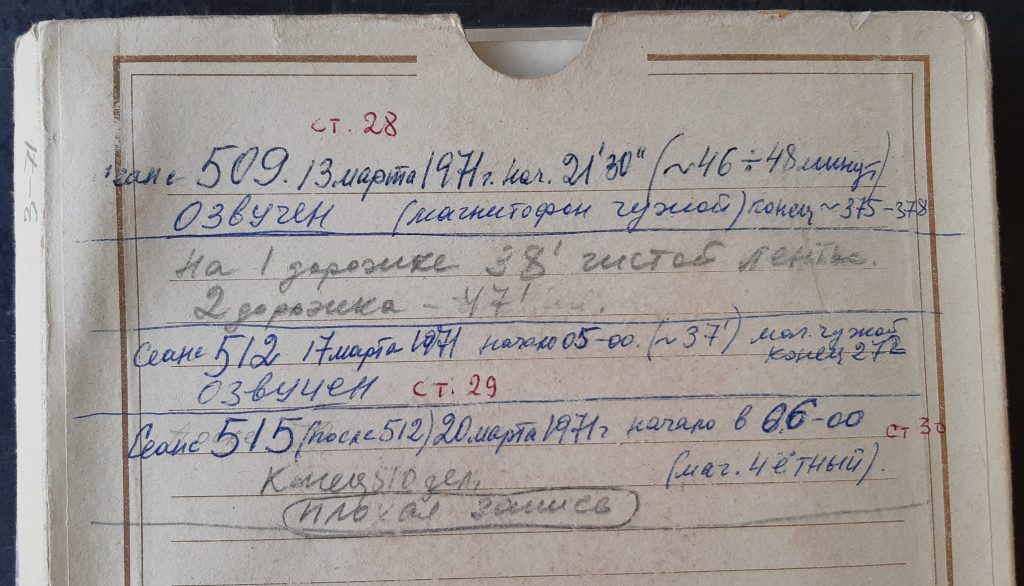 3-71
ст. 28
Сеанс 509. 13 марта 1971 г. нач. 21'30" (~46÷48 минут)
ОЗВУЧЕН (магнитофон чужой) конец ~375-378
На 1 дорожке 38' чистой ленты.
2 дорожка - 47'
Сеанс 512 17 марта 1971 начало 05-00. (~37') маг. чужой
конец 272
ОЗВУЧЕН ст. 29
Сеанс 515 (после 512) 20 марта 1971 г начало в 06-00 ст 30
(маг. чётный).
Конец 510 дел.
Плохая запись